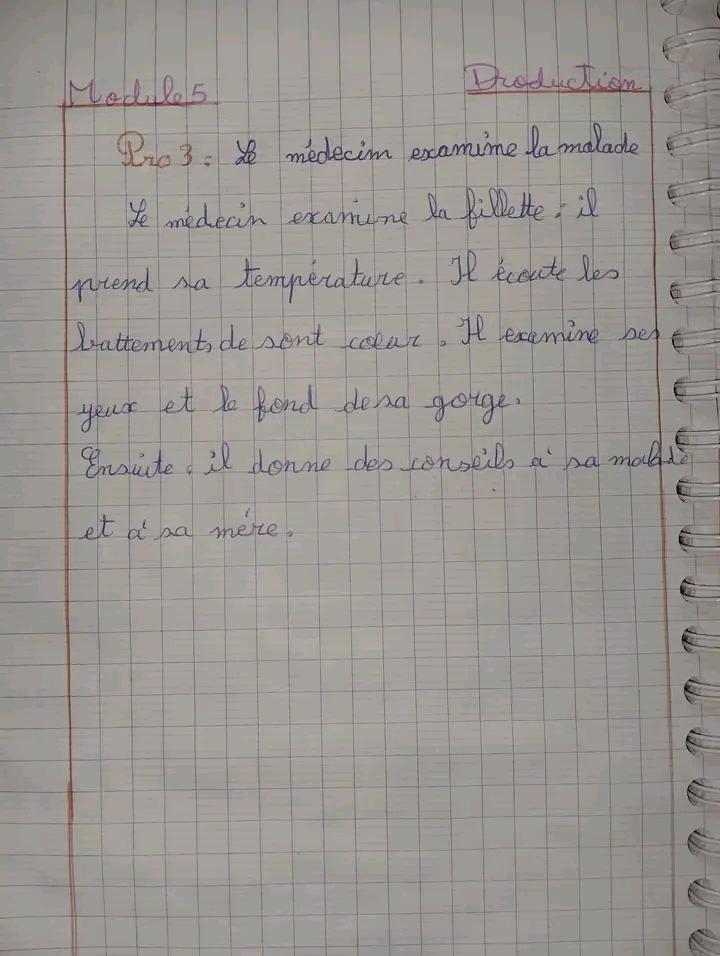 Module 5 Production
Pro 3 : Le médecim examime la malade
Le médecin examine la fillette : il
prend sa température. Il écoute les
battements de sont coeur. Il examine ses
yeux et le fond de sa gorge.
Ensuite, il donne des conseils à sa malade
et à sa mère.